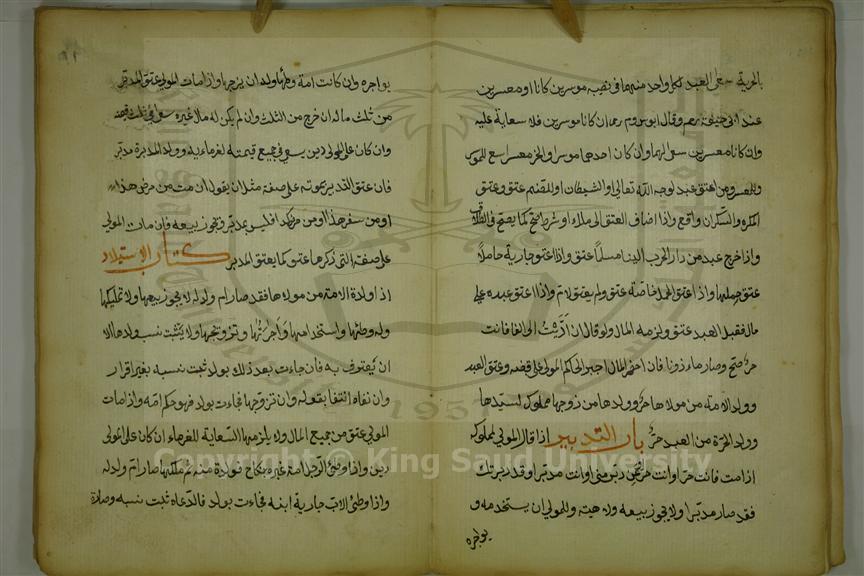 بالحرية سعى العبد لكل واحد منهما في نصيبه موسرين كانا او معسرين
عند ابي حنيفة رحم وقال ابو يوسف وم رحم ان كانا موسرين فلا سعاية عليه
وان كانا معسرين سعى لهما وان كان احدهما موسرا والاخر معسرا سعى للموسر
وللمعسر ومن اعتق عبد لوجه الله تعالى او الشيطان او للصنم عتق وعتق
المكره والسكران واقع واذا اضاف العتق الى ملك او شرط صح كما يصح في الطلاق
واذا خرج عبد من دار الحرب الينا مسلما عتق واذا اعتق جارية حاملا
عتق حملها واذ اعتق الحمل خاصة عتق ولم يعتق الام واذا اعتق عبده على
مال فقبل العبد عتق ولزمه المال ولو قال ان اديت الى الفا فانت
حر صح وصار ماءذونا فان احضر المال اجبر الحاكم المولى على قبضه وعتق العبد
وولد الامة من مولاها حر وولدها من زوجها مملوك لسيدها
وولد الحرة من العبد حر باب التدبير اذا قال المولى لمملوكه
اذا مت فانت حر او انت حر عن دبر مني او انت مدبر او قد دبرتك
فقد صار مدبرا ولا يجوز بيعه ولا هبته وللمولى ان يستخدمه و
يواجره
يواجره وان كانت امة وطئها وله ان يزوجها واذا مات المولى عتق المدبر
من ثلث ماله ان خرج من الثلث وان لم يكن له مال غيره سعى في ثلث قيمته
وان كان على المولى دين يسعى في جميع قيمته لغرماءيه وولد المدبرة مدبر
فان علق التدبير بموته على صفة مثل ان يقول ان مت من مرضي هذا
او من سفر هذا او من مرض كذا فليس بمدبر ويجوز بيعه فان مات المولى
على صفته التي ذكرها عتق كما يعتق المدبر كتاب الاستيلاد
اذا ولدة الامة من مولاها فقد صار ام ولد له لا يجوز بيعها ولا تمليكها
وله وطئها واستخدامها واجرتها وتزويجها ولا يثبت نسب ولدها الا
ان يعترف به فان جاءت بعد ذلك بولد ثبت نسبه بغير اقرار
وان نفاه انتفا بقوله وان زوجها فجاءت بولد فهو حكم امه واذا مات
المولى عتق من جميع المال ولا يلزمها السعاية للغرماء ان كان على المولى
دين واذا وطئ الرجل امة غيره بنكاح فولدة منه ثم ملكها صار ام ولد له
واذا وطئ الاب جارية ابنه فجاءت بولد فادعاه ثبت نسبه وصارة
Copyright © King Saud University
1957